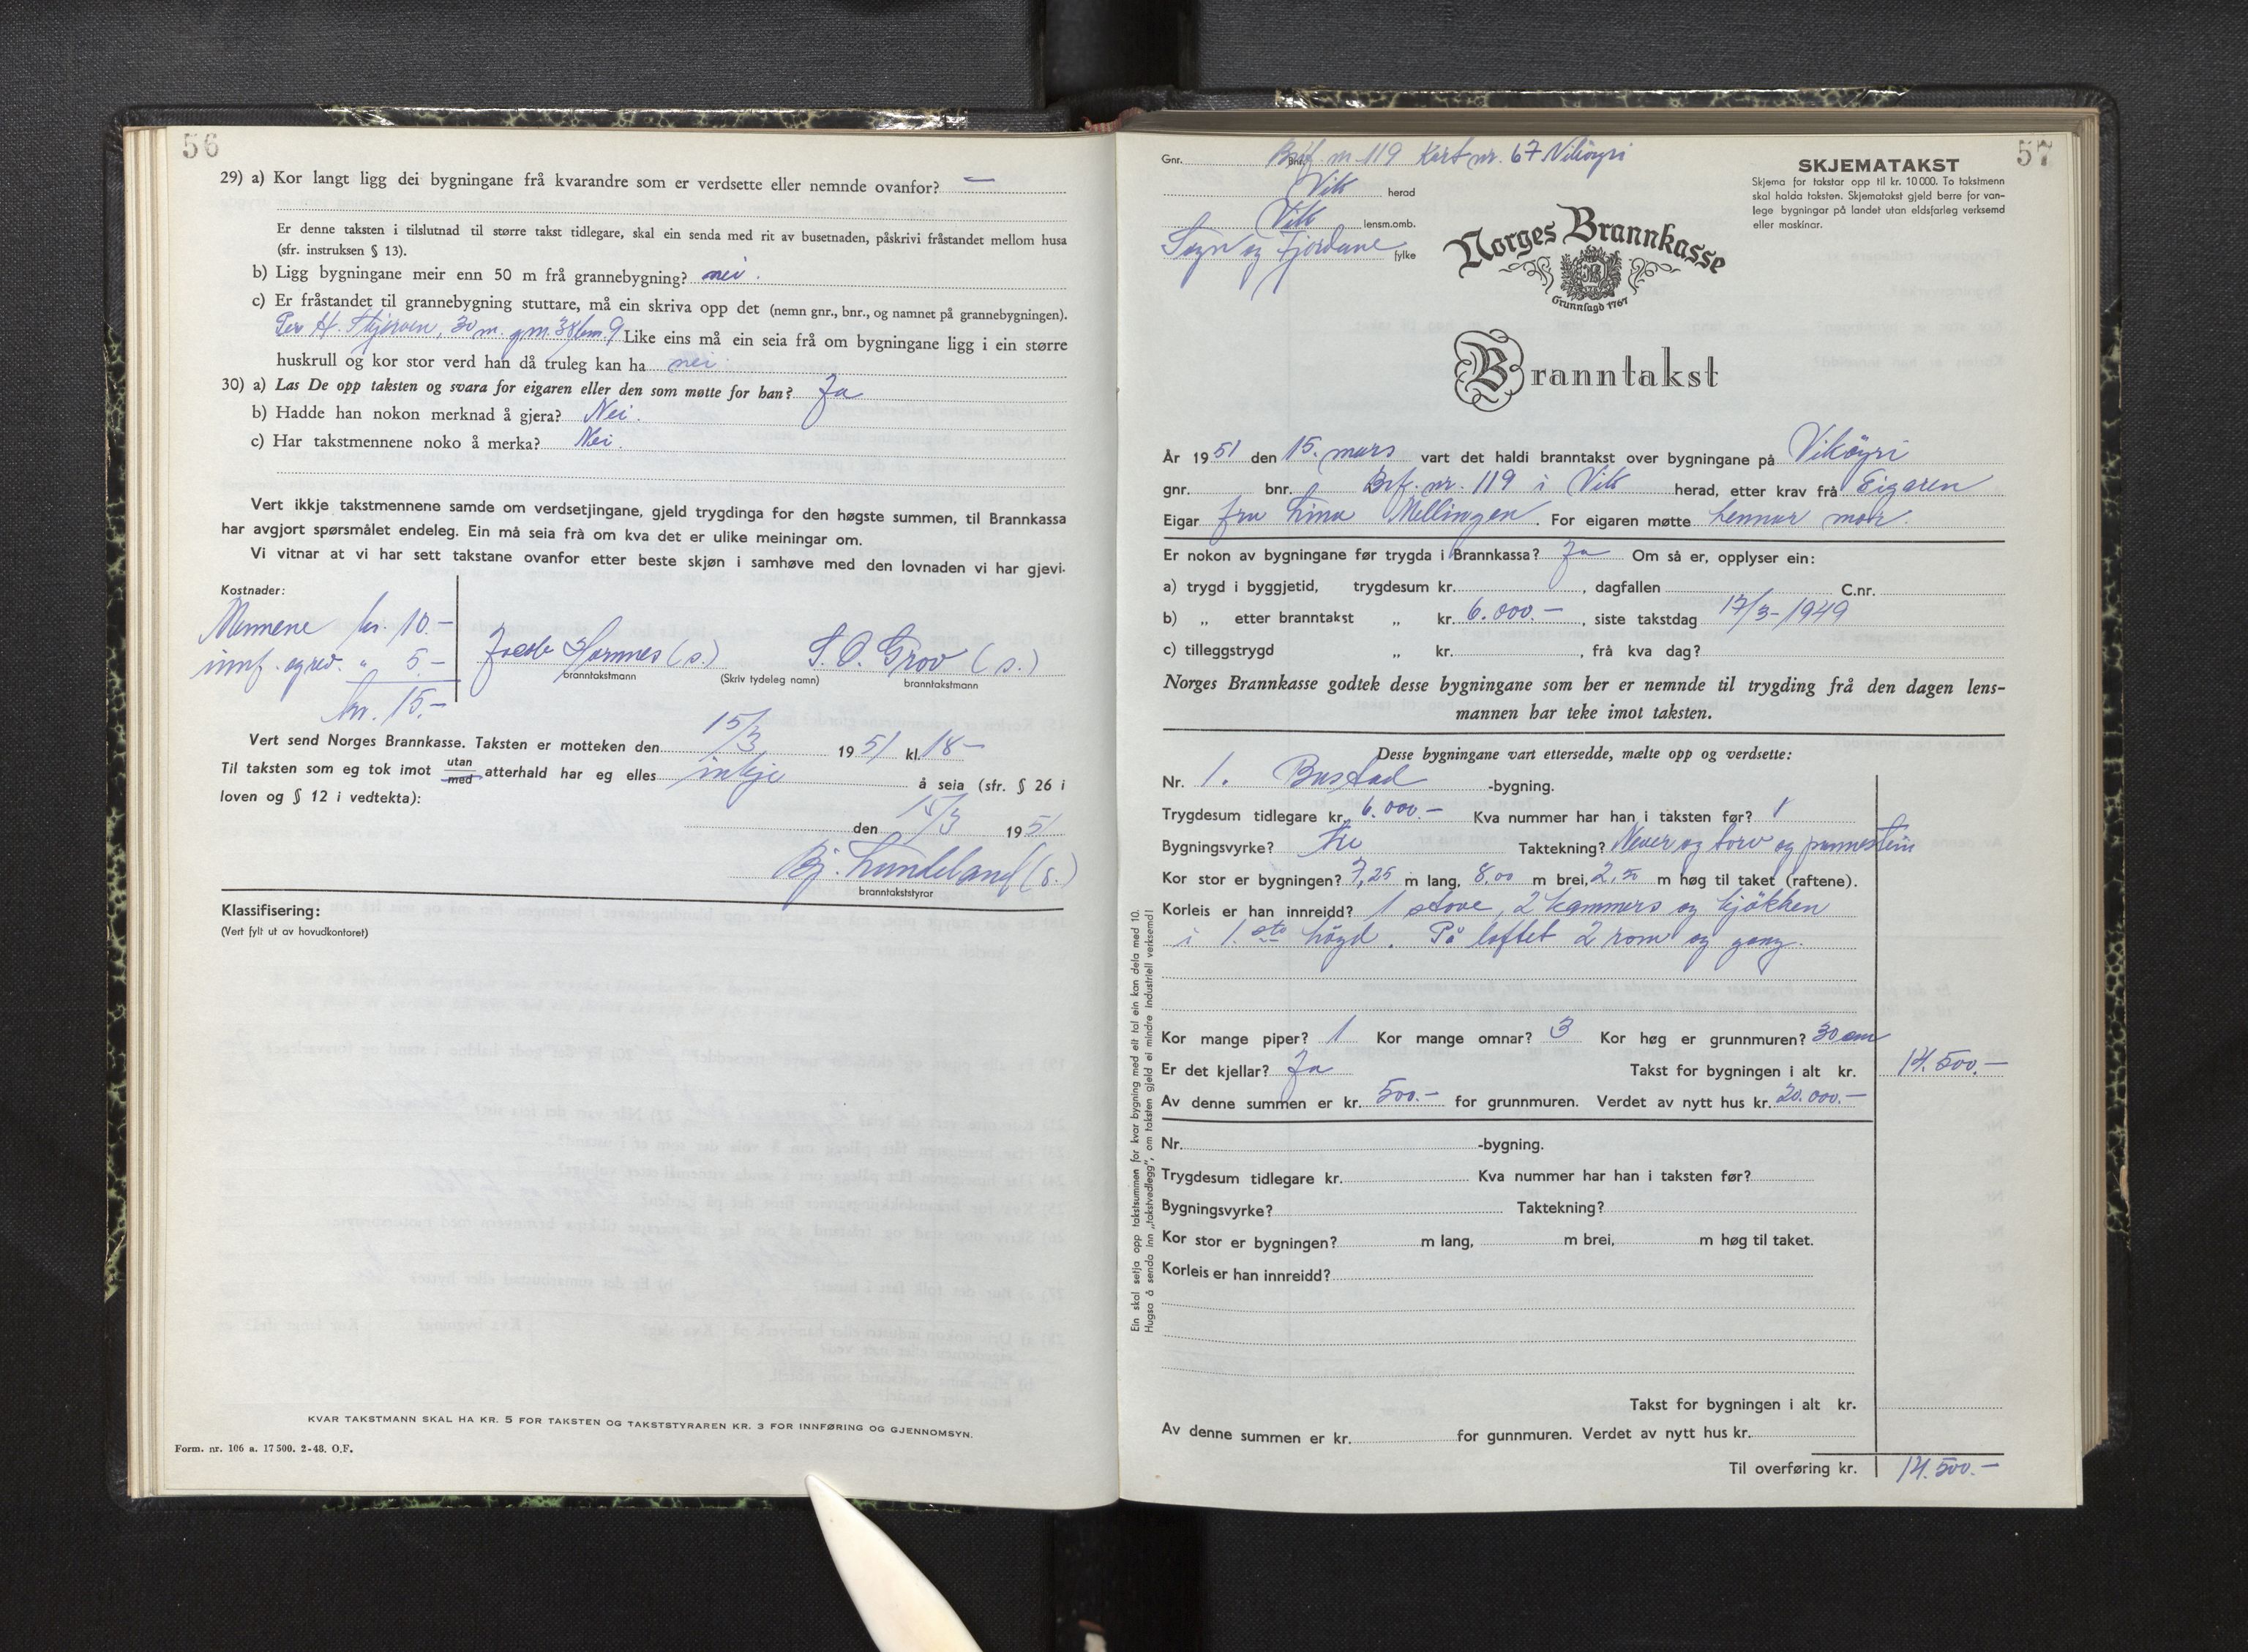 56
29) a) Kor langt ligg dei bygningane frå kvarandre som er verdsette eller nemnde ovanfor? —
Er denne taksten i tilslutnad til større takst tidlegare, skal ein senda med rit av busetnaden, påskrivi fråstandet mellom husa
(sfr. instruksen § 13).
b) Ligg bygningane meir enn 50 m frå grannebygning? nei.
c) Er fråstandet til grannebygning stuttare, må ein skriva opp det (nemn gnr., bnr., og namnet på grannebygningen).
Per H. 30 m. gnr. 38 bnr. 9 Like eins må ein seia frå om bygningane ligg i ein større
huskrull og kor stor verd han då truleg kan ha nei
30) a) Las De opp taksten og svara for eigaren eller den som møtte for han? Ja
b) Hadde han nokon merknad å gjera? Nei.
c) Har takstmennene noko å merka? Nei.
Vert ikkje takstmennene samde om verdsetjingane, gjeld trygdinga for den høgste summen, til Brannkassa
har avgjort spørsmålet endeleg. Ein må seia frå om kva det er ulike meiningar om.
Vi vitnar at vi har sett takstane ovanfor etter beste skjøn i samhøve med den lovnaden vi har gjevi.
Kostnader:
Mennene kr. 10.—
innf. og red. " 5.—
kr. 15.—
Jacob Hamnes (s.) S. O. Grov (s.)
branntakstmann (Skriv tydeleg namn) branntakstmann
Vert send Norges Brannkasse. Taksten er motteken den 15/3 1951 kl. 18—
Til taksten som eg tok imot utan/med atterhald har eg elles inkje å seia (sfr. § 26 i
loven og § 12 i vedtekta):
den 15/3 1951
Bj. Lundeland (s.)
branntakststyrar
Klassifisering:
(Vert fylt ut av hovudkontoret)
KVAR TAKSTMANN SKAL HA KR. 5 FOR TAKSTEN OG TAKSTSTYRAREN KR. 3 FOR INNFØRING OG GJENNOMSYN.
Form. nr. 106 a. 17 500. 2-48. O.F.
57
Gnr. Bnr. Brf. nr 119 Kart nr. 67 Viköyri
Vik herad
Vik lensm.omb.
Sogn og Fjordane fylke
SKJEMATAKST
Skjema for takstar opp til kr. 10 000. To takstmenn
skal halda taksten. Skjematakst gjeld berre for van-
lege bygningar på landet utan eldsfarleg verksemd
eller maskinar.
Norges Brannkasse
Grunnlagd 1767
Branntakst
År 1951 den 15. mars vart det haldi branntakst over bygningane på Viköyri
gnr. bnr. Brf. nr. 119 i Vik herad, etter krav frå Eigaren
Eigar fru Lina Mellingen. For eigaren møtte hennar mor.
Er nokon av bygningane før trygda i Brannkassa? Ja Om så er, opplyser ein:
a) trygd i byggjetid, trygdesum kr. , dagfallen C.nr.
b) „ etter branntakst „ kr. 6.000.— , siste takstdag 17/3-1949
c) tilleggstrygd „ kr. , frå kva dag?
Norges Brannkasse godtek desse bygningane som her er nemnde til trygding frå den dagen lens-
mannen har teke imot taksten.
Desse bygningane vart ettersedde, mælte opp og verdsette:
Nr. 1. Bustad -bygning.
Trygdesum tidlegare kr. 6.000.— Kva nummer har han i taksten før? 1
Bygningsvyrke? Tre Taktekning? Never og torv og pannestein
Kor stor er bygningen? 7,25 m lang, 8,00 m brei, 2,50 m høg til taket (raftene).
Korleis er han innreidd? 1 stove, 2 kammers og kjökken
i 1.ste högd. På loftet 2 rom og gang.
Kor mange piper? 1 Kor mange omnar? 3 Kor høg er grunnmuren? 30 cm
Er det kjellar? Ja Takst for bygningen i alt kr. 14.500.—
Av denne summen er kr. 500.— for grunnmuren. Verdet av nytt hus kr. 20.000.—
Nr. -bygning.
Trygdesum tidlegare kr. Kva nummer har han i taksten før?
Bygningsvyrke? Taktekning?
Kor stor er bygningen? m lang, m brei, m høg til taket.
Korleis er han innreidd?
Takst for bygningen i alt kr.
Av denne summen er kr. for gunnmuren. Verdet av nytt hus kr.
Til overføring kr. 14.500.—
Ein skal setja opp takstsummen for kvar bygning med eit tal ein kan dela med 10.
Hugsa å senda inn „takstvedlegg", om taksten gjeld ei mindre industriell verksemd!